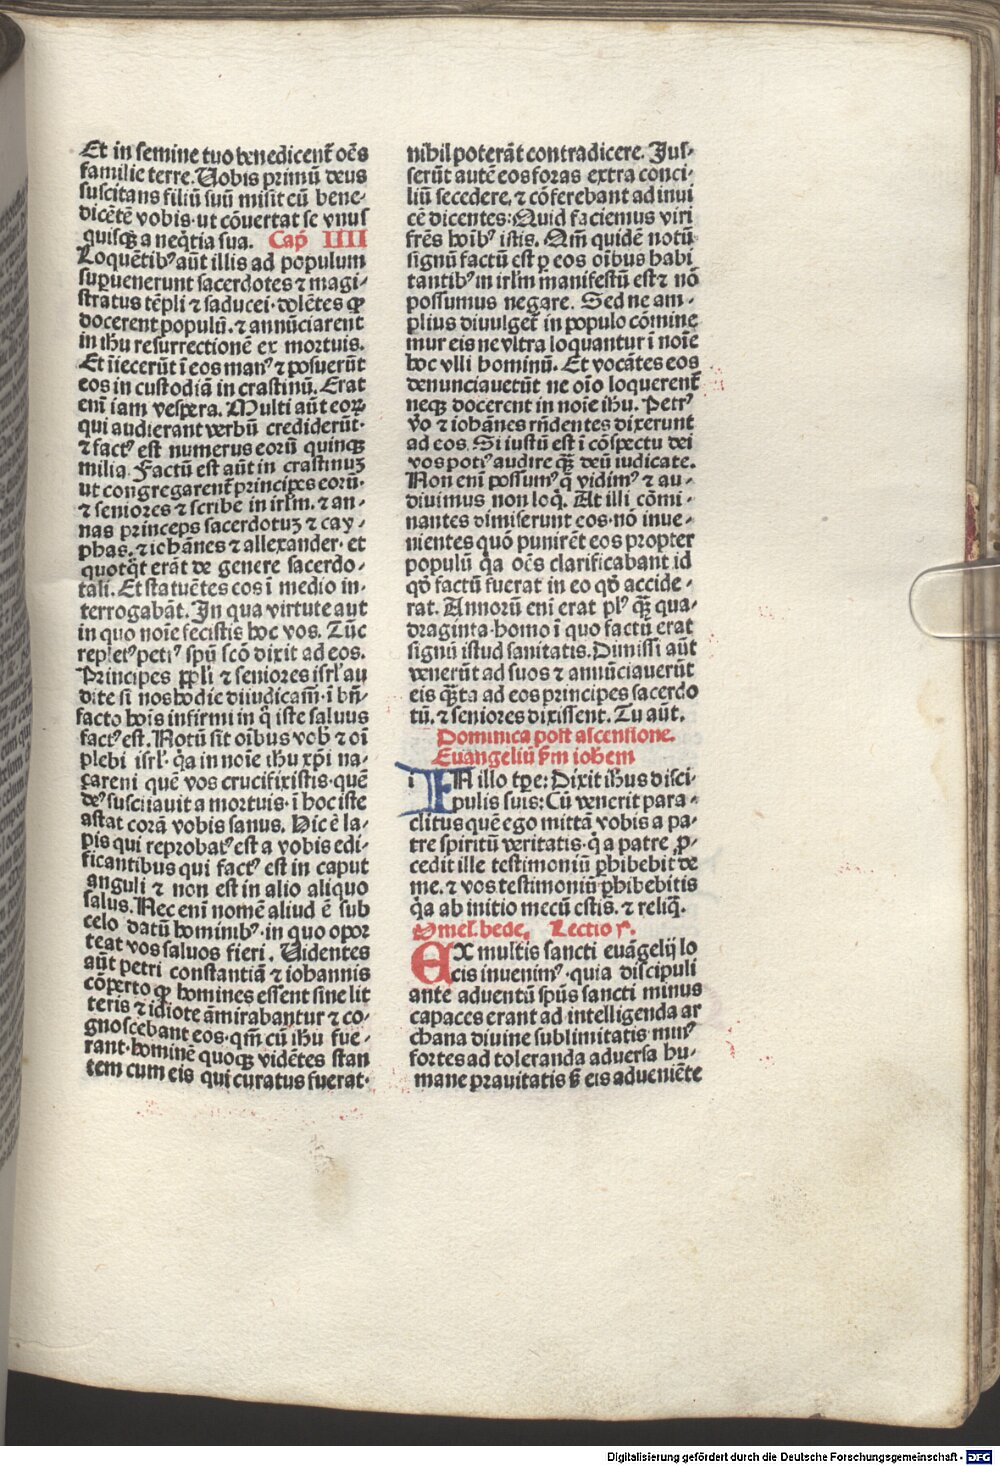 Et in semine tuo benedicent̄ oēs
familie terre. Uobis primū deus
suscitans filiū suū misit eū bene⸗
dicētē vobis· ut cōuertat se vnus
quisqꝫ a neq̄tia sua. Cap̄ IIII
Loquētibꝰ aūt illis ad populum
suꝑuenerunt sacerdotes ⁊ magi⸗
stratus tēpli ⁊ saducei· dolētes ꝙ
docerent populū. ⁊ annūciarent
in ihu resurrectionē ex mortuis.
Et īiecerūt ī eos manꝰ ⁊ posuerūt
eos in custodiā in crastinū. Erat
enī iam vespera. Multi aūt eoꝝ
qui audierant verbū crediderūt·
⁊ factꝰ est numerus eorū quinqꝫ
milia. Factū est aūt in crastinuꝫ
ut congregarent̄ principes eorū·
⁊ seniores ⁊ scribe in irlm̄. ⁊ an⸗
nas princeps sacerdotuꝫ ⁊ cay⸗
phas. ⁊ iohānes ⁊ allexander· et
quotq̄t erāt de genere sacerdo⸗
tali. Et statuētes eos ī medio in⸗
terrogabāt. In qua virtute aut
in quo noīe fecistis hoc vos. Tūc
repletꝰ petrꝰ spū scō dixit ad eos.
Principes ꝓpli ⁊ seniores isrl̄ au
dite si nos hodie diiudicam̄· ī bn̄⸗
facto hoīs infirmi in q̄ iste saluus
factꝰ est. Notū sit oībus vob̄ ⁊ oī
plebi isrl̄· q̄a in noīe ihu xp̄i na⸗
çareni quē vos crucifixistis· quē
deꝰ suscitauit a mortuis· ī hoc iste
astat corā vobis sanus. Hic ē la⸗
pis qui reprobatꝰ est a vobis edi⸗
ficantibus qui factꝰ est in caput
anguli ⁊ non est in alio aliquo
salus. Nec enī nomē aliud ē sub
celo datū hominibꝰ· in quo opor
teat vos saluos fieri. Uidentes
aūt petri constantiā ⁊ iohannis
cōperto ꝙ homines essent sine lit
teris ⁊ idiote āmirabantur ⁊ co⸗
gnoscebant eos· qm̄ cū ihu fue⸗
rant· hominē quoqꝫ vidētes stan
tem cum eis qui curatus fuerat·
nihil poterāt contradicere. Jus⸗
serūt autē eos foras extra conci⸗
liū secedere. ⁊ cōferebant ad inui
cē dicentes: Quid faciemus viri
frēs hoībꝰ istis. Qm̄ quidē notū
signū factū est ꝑ eos oībus habi
tantibꝰ in irlm̄ manifestū est ⁊ nō
possumus negare. Sed ne am⸗
plius diuulget̄ in populo cōmine
mur eis ne vltra loquantur ī noīe
hoc vlli hominū. Et vocātes eos
denunciauerūt ne oīo loquerent̄
neqꝫ docerent in noīe ihu. Petrꝰ
v̄o ⁊ iohānes rn̄dentes dixerunt
ad eos. Si iustū est ī cōspectu dei
vos potiꝰ audire qꝫ̄ deū iudicate.
Non enī possumꝰ q̄ vidimꝰ ⁊ au⸗
diuimus non loq̄. At illi cōmi⸗
nantes dimiserunt eos· nō inue⸗
nientes quō punirēt eos propter
populū q̄a oēs clarificabant id
qd̄ factū fuerat in eo qd̄ accide⸗
rat. Annorū enī erat plꝰ qꝫ̄ qua⸗
draginta· homo ī quo factū erat
signū istud sanitatis. Dimissi aūt
venerūt ad suos ⁊ annūciauerūt
eis qꝫ̄ta ad eos principes sacerdo
tū. ⁊ seniores dixissent. Tu aūt.
Dominica post ascensione.
Euangeliū s̄m ioh̄em
IN illo tp̄e: Dixit ihūs disci⸗
pulis suis: Cū venerit para⸗
clitus quē ego mittā vobis a pa⸗
tre spiritū veritatis· q̄ a patre ꝓ⸗
cedit ille testimoniū ꝑhibebit de
me. ⁊ vos testimoniū ꝑhibebitis
q̄a ab initio mecū estis. ⁊ reliq̄.
Omel̄. bede. Lectio j.
EX multis sancti euāgelij lo
cis inuenimꝰ· quia discipuli
ante aduentū spūs sancti minus
capaces erant ad intelligenda ar
chana diuine sublimitatis· minꝰ
fortes ad toleranda aduersa hu⸗
mane prauitatis s̄ eis adueniēte
Digitalisierung gefördert durch die Deutsche Forschungsgemeinschaft - DFG